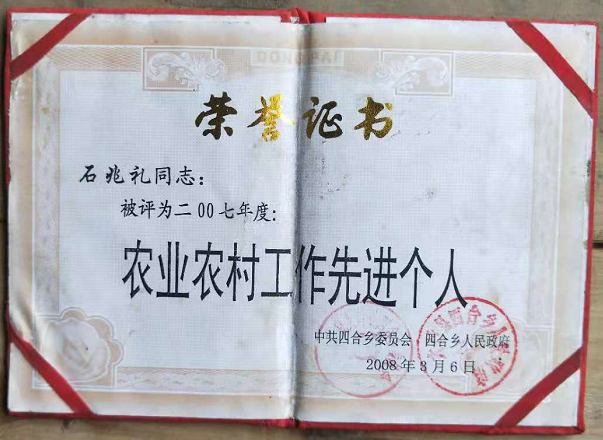 荣誉证书
石兆礼同志：
被评为二00七年度：
农业农村工作先进个人
中共四合乡委员会 四合乡人民政府
2008年3月6日